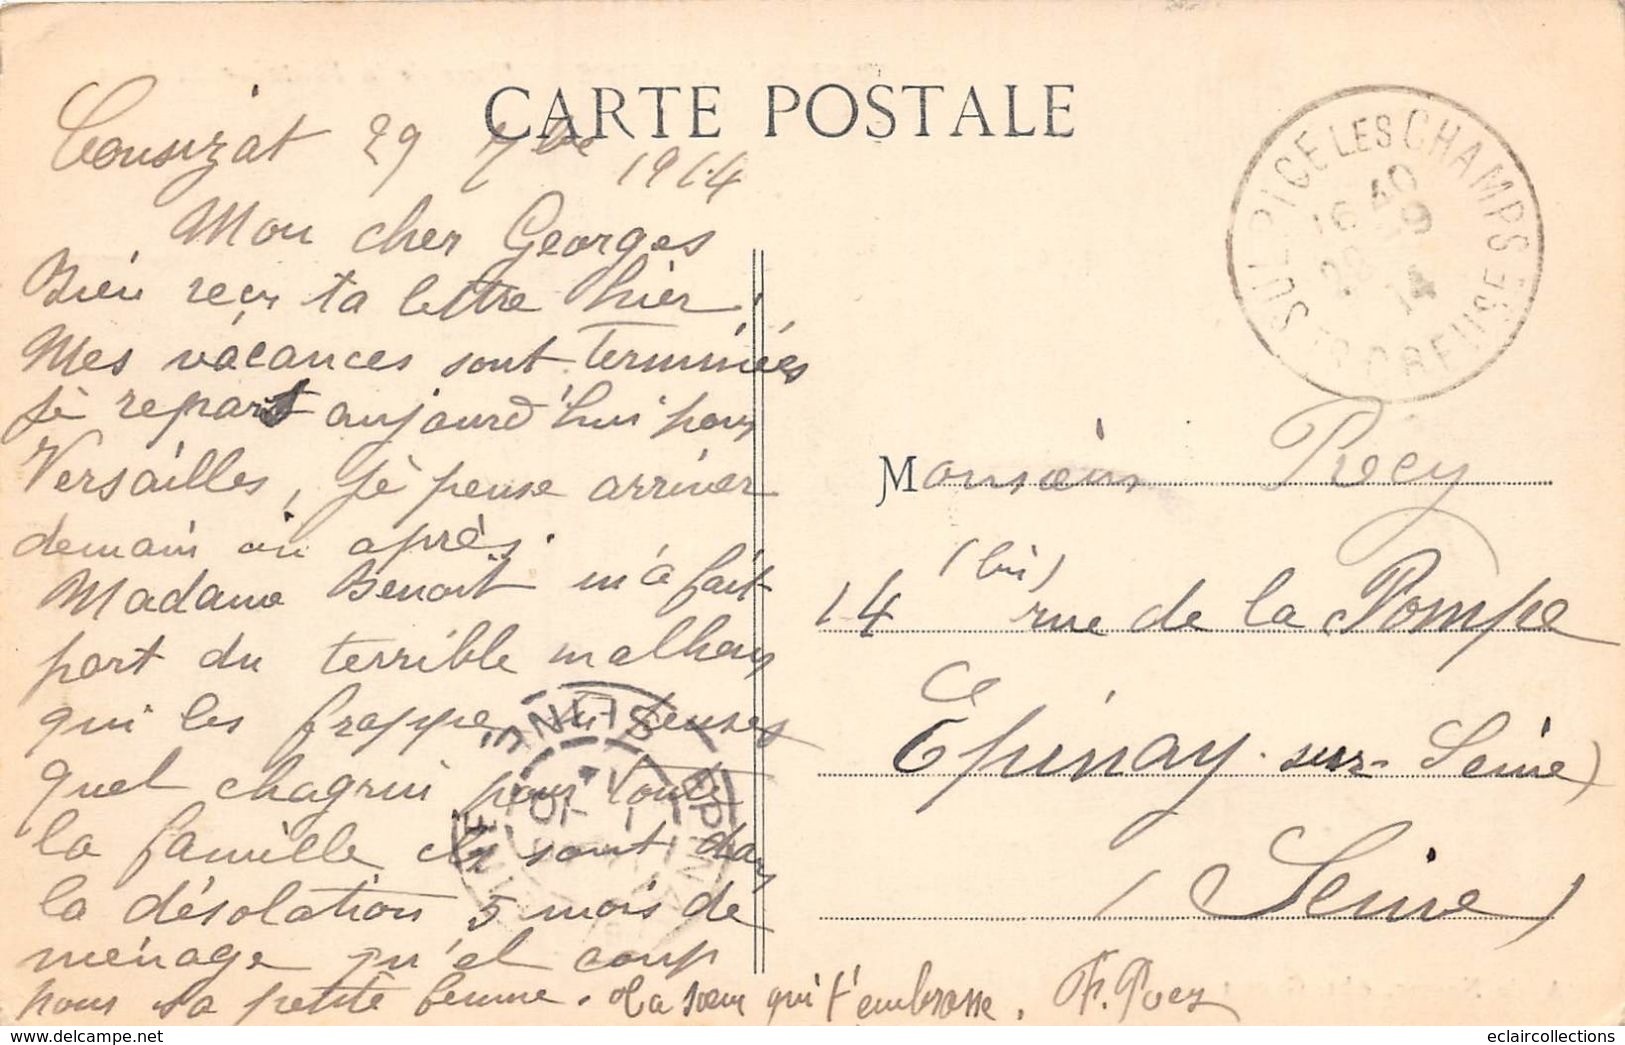 CARTE POSTALE
29 7bre 1914
Mon cher Georges
Bien reçu ta lettre hier
Mes vacances sont terminées
je repars aujourd'hui pour
Versailles, je pense arriver
demain ou après.
Madame Benoit m'a fait
part du terrible malheur
qui les frappe
quel chagrin pour toute
la famille ils sont dans
la désolation 5 mois de
ménage qu'el coup
pour sa petite femme. Ta sœur qui t'embrasse.
SULPICE LES CHAMPS
16 40
28 -9
14
CREUSE
Monsieur Precy
(bis)
14 rue de la Pompe
Epinay-sur-Seine
(Seine)
EPINAY
SEINE
eclaircollections